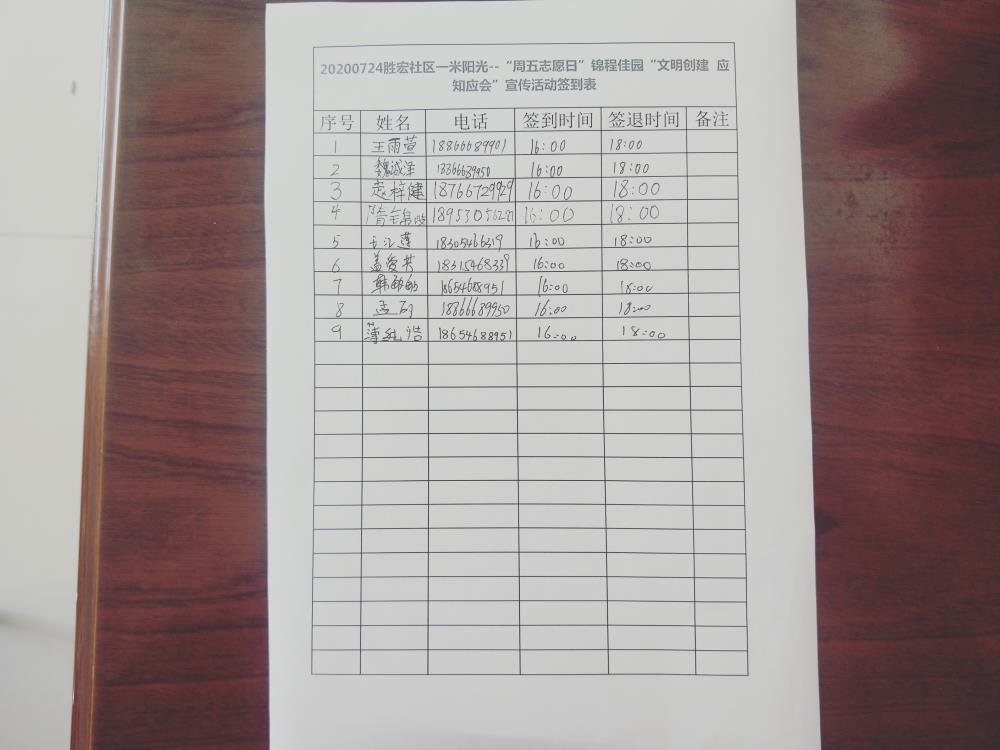 20200724胜宏社区一米阳光--“周五志愿日”锦程佳园“文明创建 应
知应会”宣传活动签到表
序号 姓名 电话 签到时间 签退时间 备注
1 王雨萱 18866689901 16:00 18:00
2 魏诚泽 16:00 18:00
3 赵梓健 18766729929 16:00 18:00
4 16:00 18:00
5 18305466319 16:00 18:00
6 盖爱芳 18315468339 16:00 18:00
7 韩 18654688951 16:00 18:00
8 孟 18866689950 16:00 18:00
9 薄纯浩 18654688951 16:00 18:00